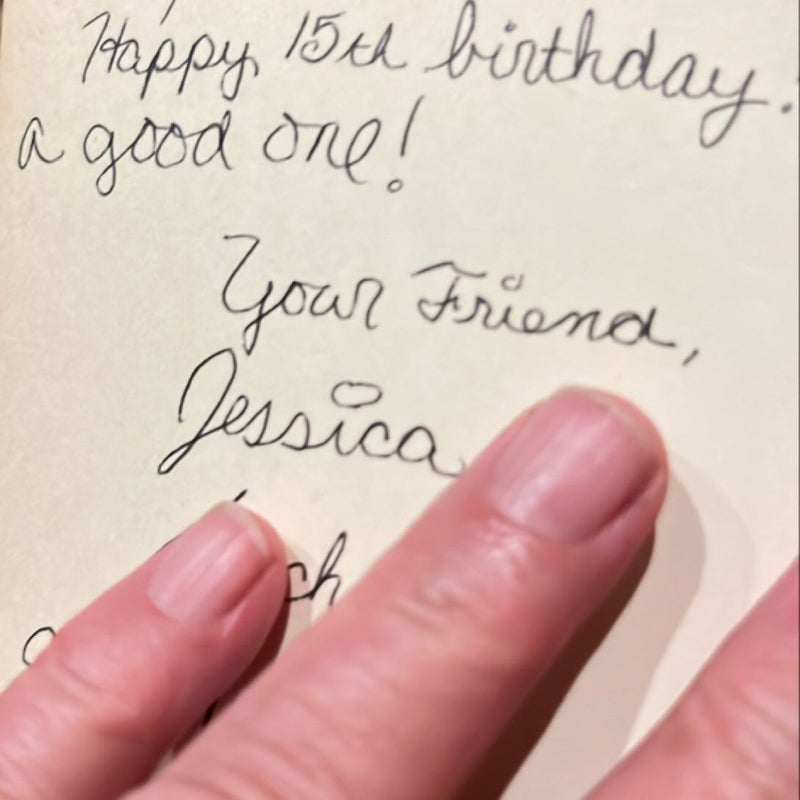 Happy 15th birthday!
a good one!
Your Friend,
Jessica